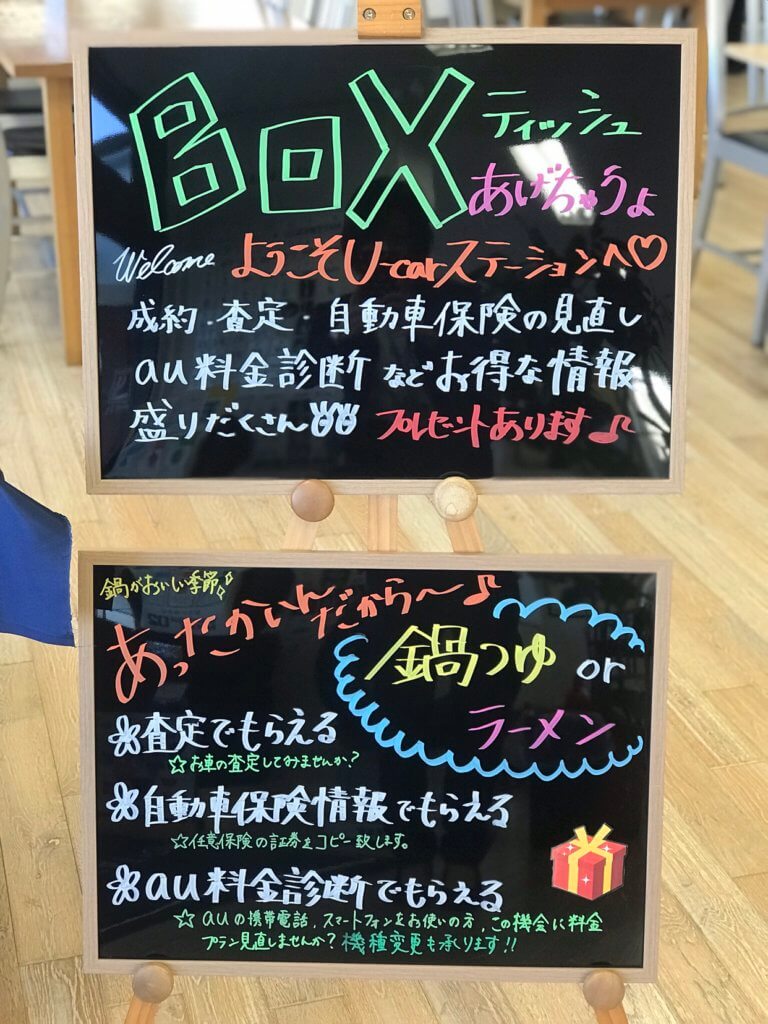 BOX ティッシュ
あげちゃうよ
Welcome ようこそU-carステーションへ♡
成約・査定・自動車保険の見直し
au料金診断 などお得な情報
盛りだくさん!!! プレゼントあります♪
鍋がおいしい季節♪
あったかいんだから〜♪
鍋つゆ or
ラーメン
査定でもらえる
☆お車の査定してみませんか?
自動車保険情報でもらえる
☆任意保険の証券をコピー致します。
au料金診断でもらえる
☆auの携帯電話、スマートフォンをお使いの方、この機会に料金
プラン見直しませんか?機種変更も承ります!!